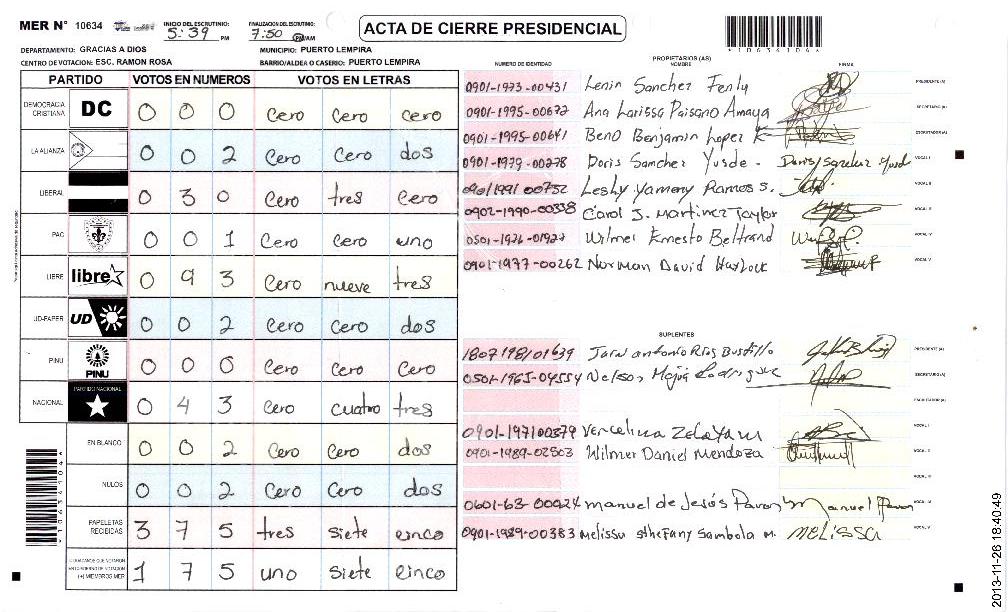 MER N° 10634
INICIO DEL ESCRUTINIO: 5:39 PM
FINALIZACIÓN DEL ESCRUTINIO: 7:50 PM/AM
ACTA DE CIERRE PRESIDENCIAL
*1063410 6*
DEPARTAMENTO: GRACIAS A DIOS MUNICIPIO: PUERTO LEMPIRA
CENTRO DE VOTACION: ESC. RAMON ROSA BARRIO/ALDEA O CASERIO: PUERTO LEMPIRA
PARTIDO VOTOS EN NUMEROS VOTOS EN LETRAS
DEMOCRACIA CRISTIANA DC 0 0 0 Cero Cero cero
LA ALIANZA 0 0 2 Cero Cero dos
LIBERAL 0 3 0 Cero tres Cero
PAC 0 0 1 Cero cero uno
LIBRE libre 0 9 3 Cero nueve tres
UD-FAPER UD 0 0 2 Cero Cero dos
PINU PINU 0 0 0 Cero Cero Cero
NACIONAL PARTIDO NACIONAL 0 4 3 Cero cuatro tres
EN BLANCO 0 0 2 Cero Cero dos
NULOS 0 0 2 Cero Cero dos
PAPELETAS RECIBIDAS 3 7 5 tres siete cinco
CIUDADANOS QUE VOTARON EN CUADERNO DE VOTACION (+) MIEMBROS MER 1 7 5 uno siete cinco
PROPIETARIOS (AS)
NUMERO DE IDENTIDAD NOMBRE FIRMA
0901-1973-00431 Lenin Sanchez Fenly PRESIDENTE (A)
0901-1995-00672 Ana Larissa Paisano Amaya SECRETARIO (A)
0901-1995-00641 Beno Benjamin Lopez K ESCRUTADOR (A)
0901-1979-00278 Doris Sanchez Yusde - VOCAL I
0901 1991 00752 Leshy Yameny Ramos S. VOCAL II
0902-1990-00338 Carol J. Martinez Taylor VOCAL III
0501-1976-01927 Wilmer Ernesto Beltrand VOCAL IV
0901-1977-00262 Norman David Haylock VOCAL V
SUPLENTES
1807 1981 01639 antonio Rios Bustillo PRESIDENTE (A)
0501-1965-04554 Nelson Mejia Rodriguez SECRETARIO (A)
ESCRUTADOR (A)
0901-1971 00379 Vercelina Zelaya VOCAL I
0901-1989-02503 Wilmer Daniel Mendoza VOCAL II
VOCAL III
0601-63-00024 manuel de Jesús Pavon Manuel Pavon VOCAL IV
0901-1989-00383 Melissa sthefany Sambola M. MELISSA VOCAL V
2013-11-26 18:40:49